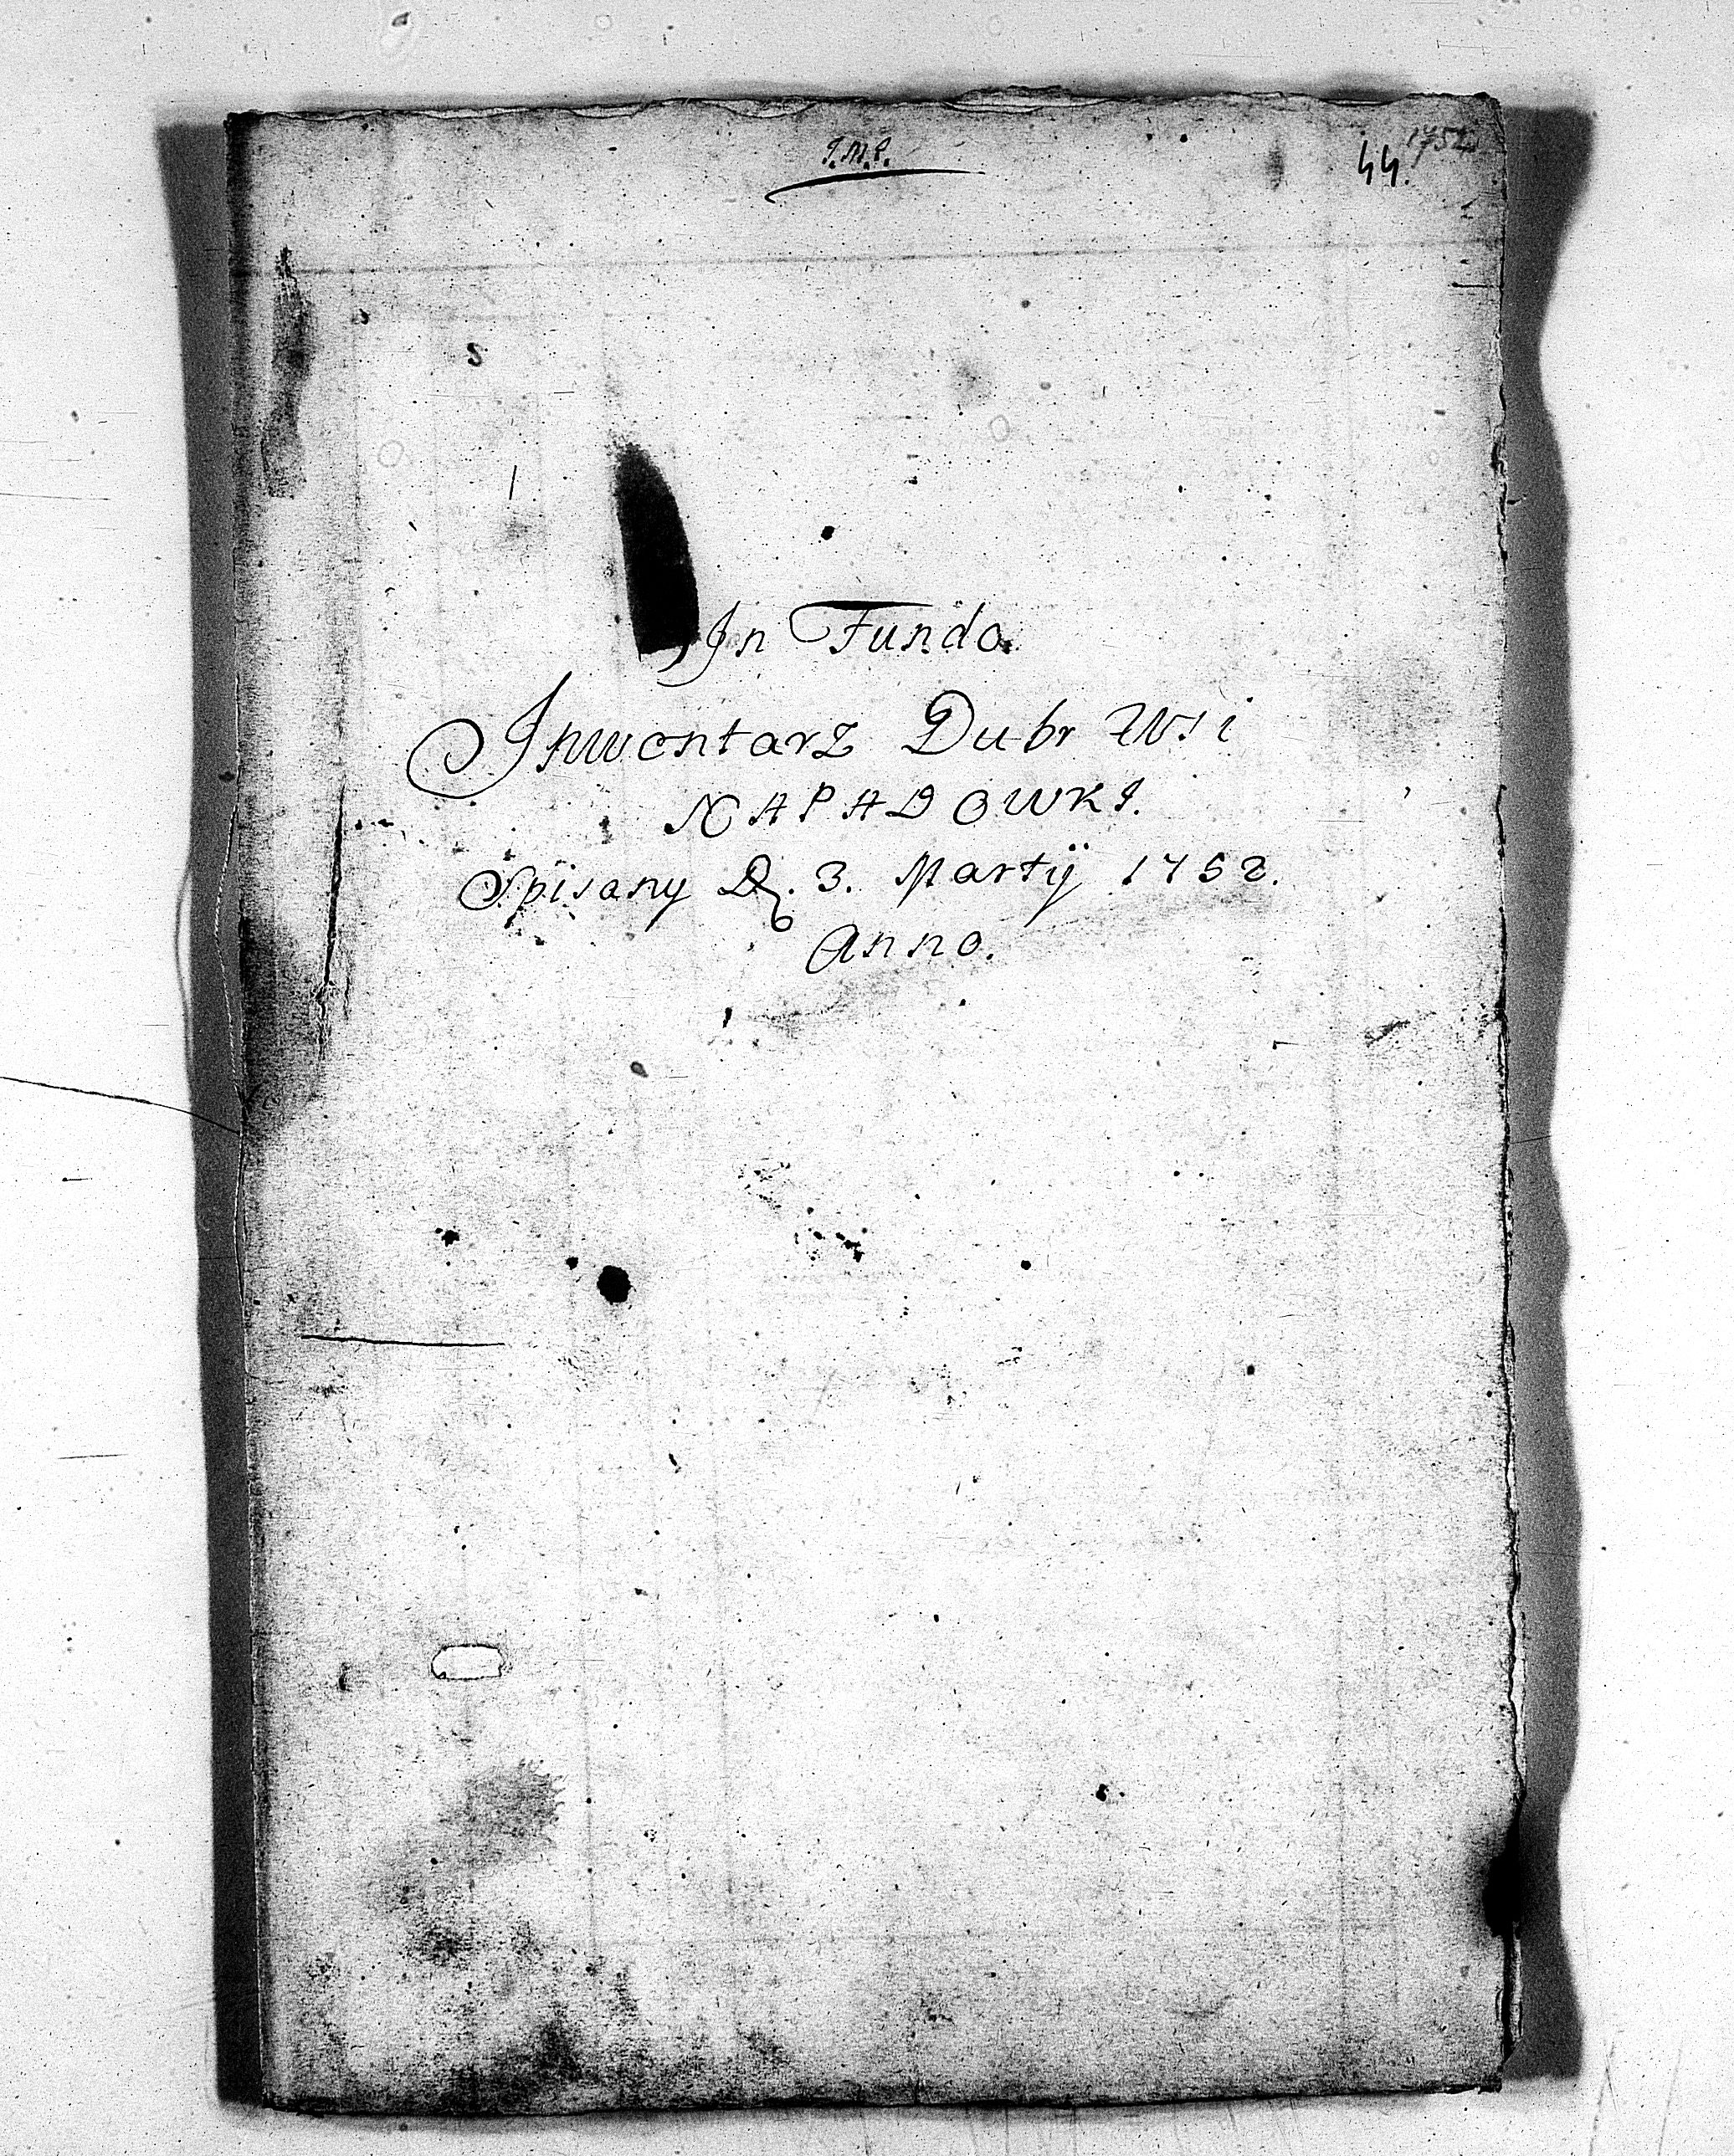 J.M.J.
44. 1752
Jn Fundo
Jnwentarz Dubr Wsi
NAPADOWKI.
Spisany D. 3. Martij 1752.
Anno.